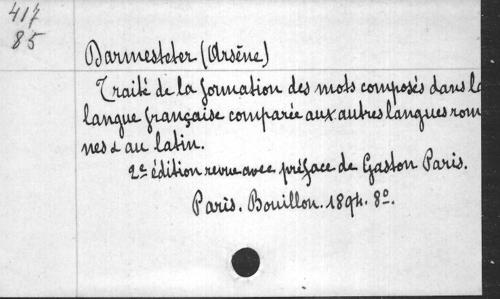 417
85
Darmesteter (Arsène)
Traité de la formation des mots composés dans la
langue française comparée aux autres langues rom
nes & au latin.
2e édition revue avec préface de Gaston Paris.
Paris. Bouillon. 1894. 8o.